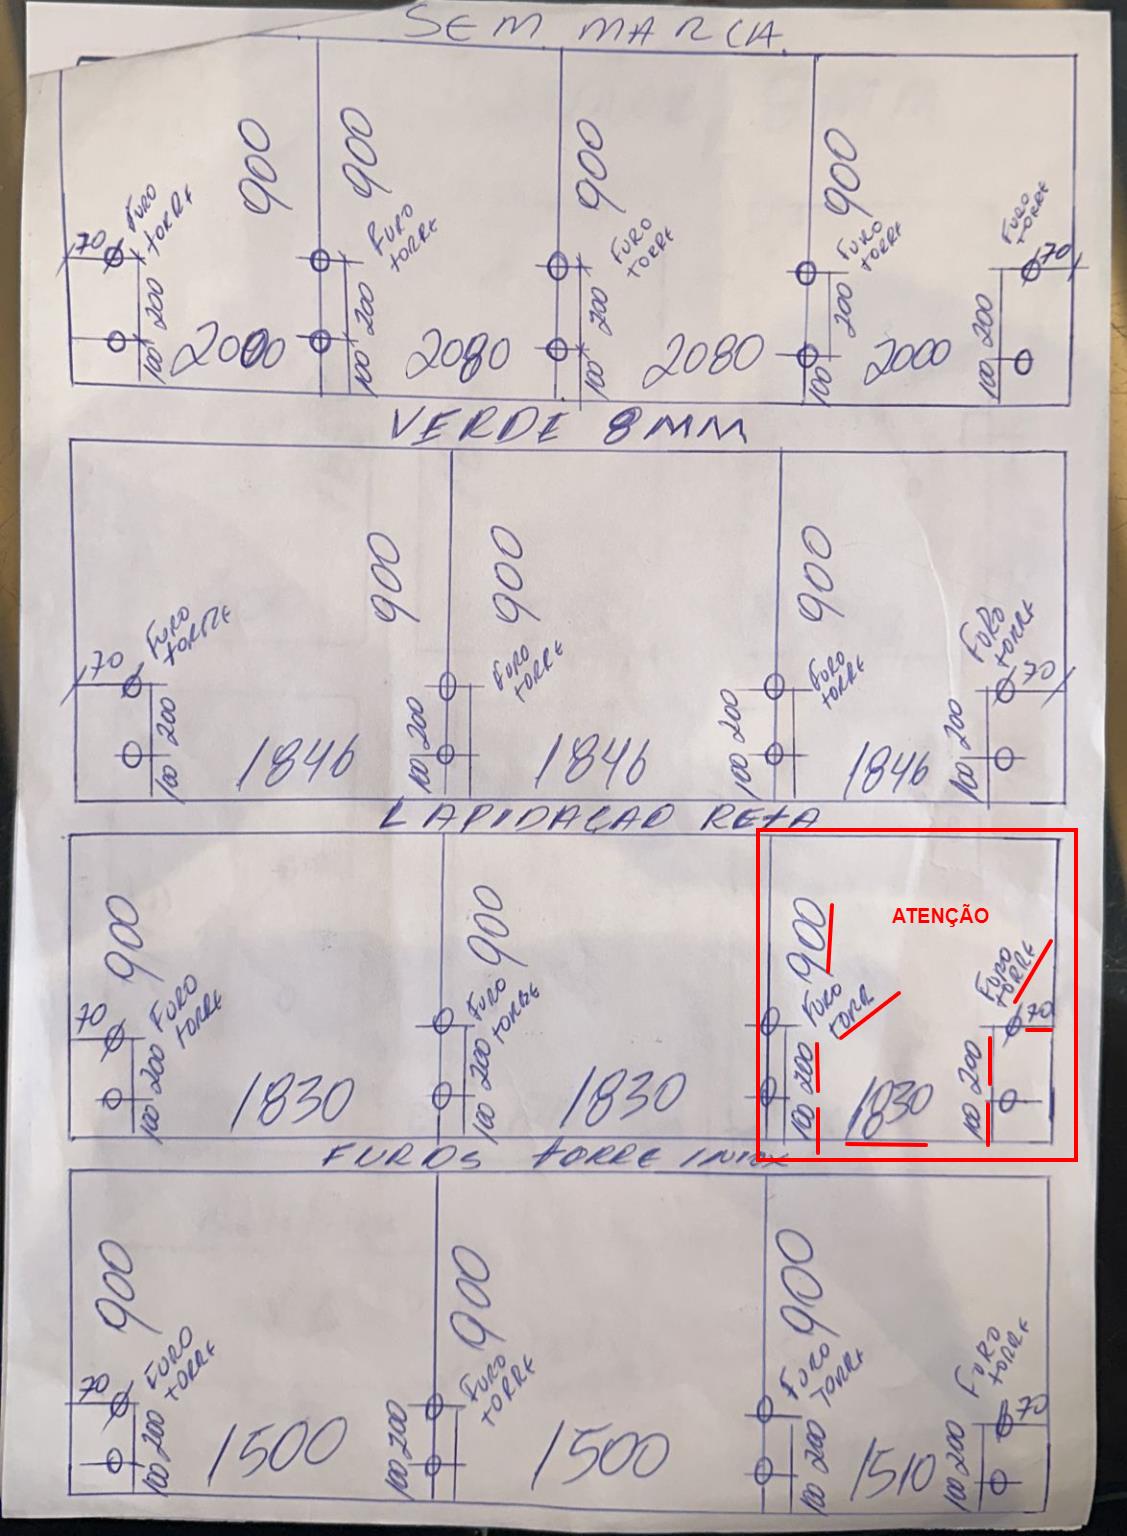 SEM MARCA.
900 900 900 900
70 FURO TORRE
FURO TORRE
FURO TORRE
FURO TORRE
FURO TORRE 70
200 200 200 200 200
100 2000 100 2080 100 2080 100 2000 100
VERDE 8MM
900 900 900
70 FURO TORRE
FURO TORRE
FURO TORRE
FURO TORRE 70
200 200 200 200
100 1846 100 1846 100 1846 100
LAPIDAÇAO RETA
900 900 900 ATENÇÃO
70 FURO TORRE
FURO TORRE
FURO TORR
FURO TORRE 70
200 200 200 200
100 1830 100 1830 100 1830 100
FUROS TORRE INOX
900 900 900
70 FURO TORRE
FURO TORRE
FURO TORRE
FURO TORRE 70
200 200 200 200
100 1500 100 1500 100 1510 100